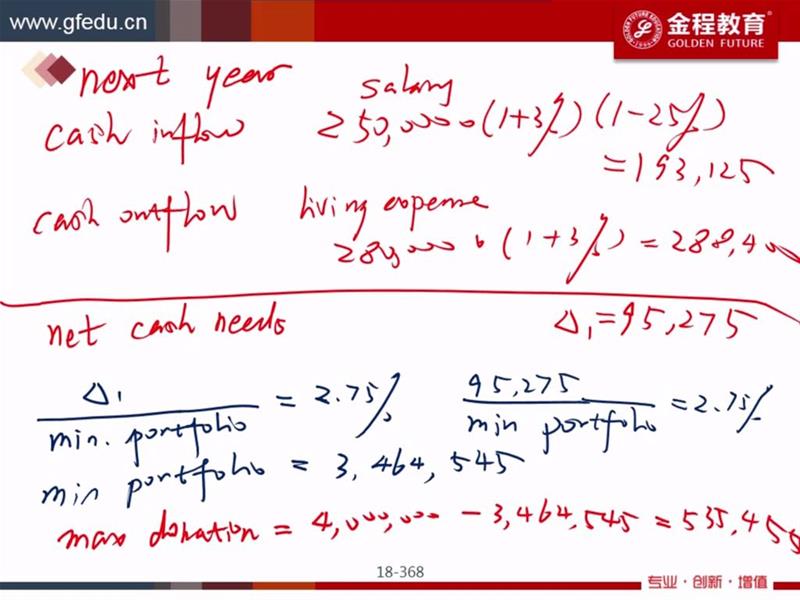 www.gfedu.cn
金程教育
GOLDEN FUTURE
next year
salary
cash inflow 250,000·(1+3%)(1-25%)
=193,125
cash outflow living expense
280,000·(1+3%)=288,400
net cash needs Δ₁=95,275
Δ₁ / min. portfolio = 2.75% 95,275 / min portfolio = 2.75%
min portfolio = 3,464,545
max donation = 4,000,000 - 3,464,545 = 535,455
18-368
专业·创新·增值